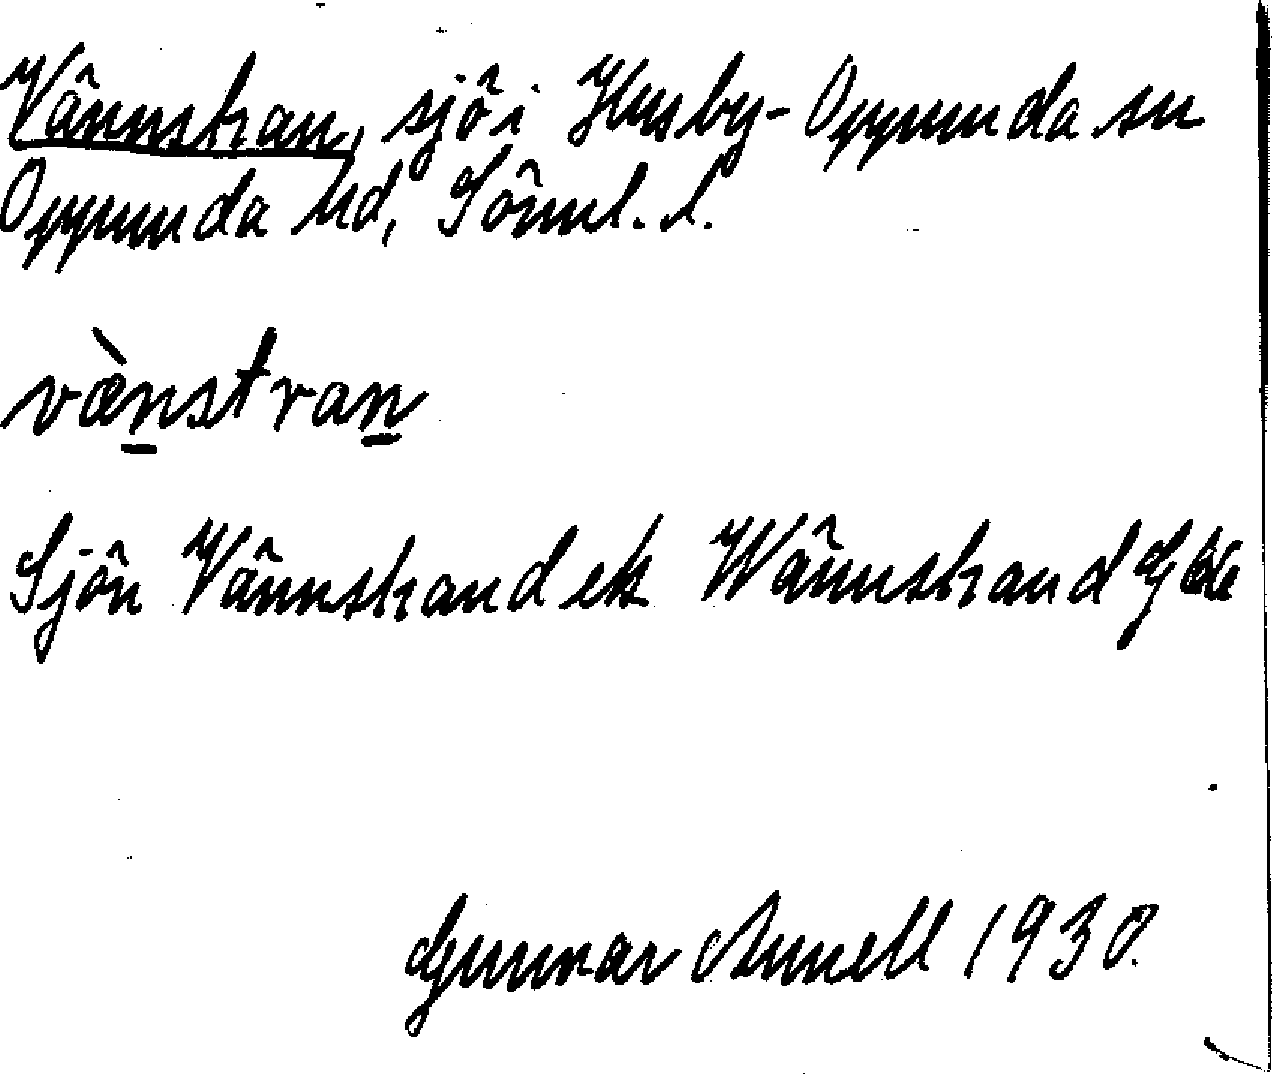 Vännstran, sjö i Husby-Oppunda sn
Oppunda hd, Söml. l.
vænstran
Sjön Vännstrand ek Wännstrand Gsk
Gunnar Annell 1930.